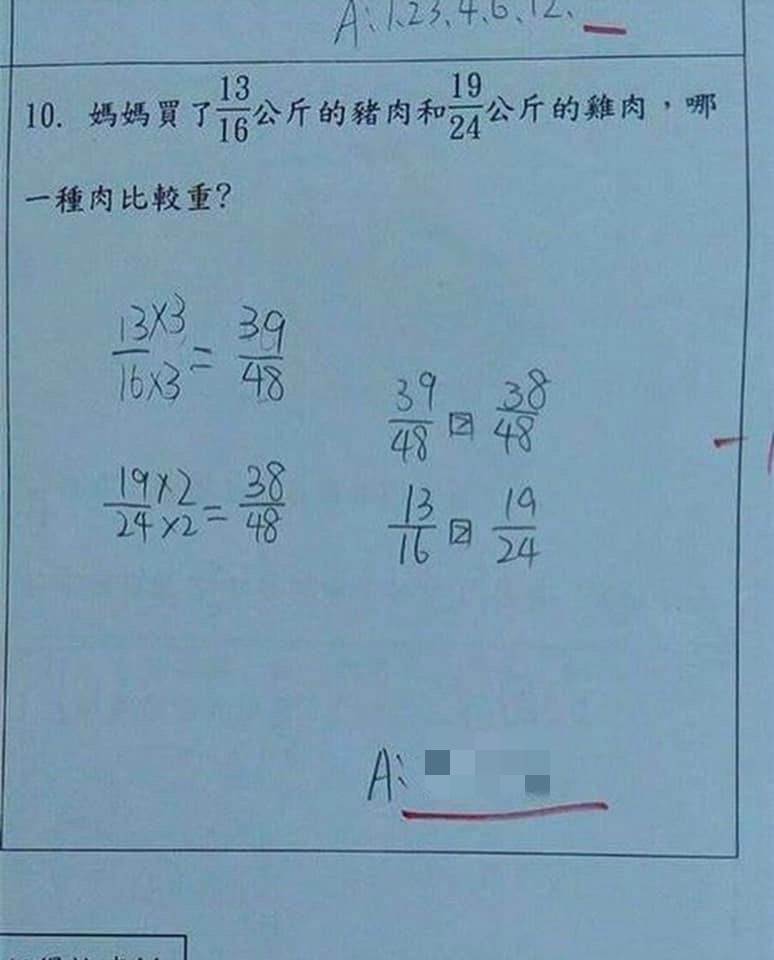 A:1、2、3、4、6、12、
10. 媽媽買了13/16公斤的豬肉和19/24公斤的雞肉，哪
一種肉比較重?
13×3/16×3 = 39/48
39/48 > 38/48
19×2/24×2 = 38/48
13/16 > 19/24
A: